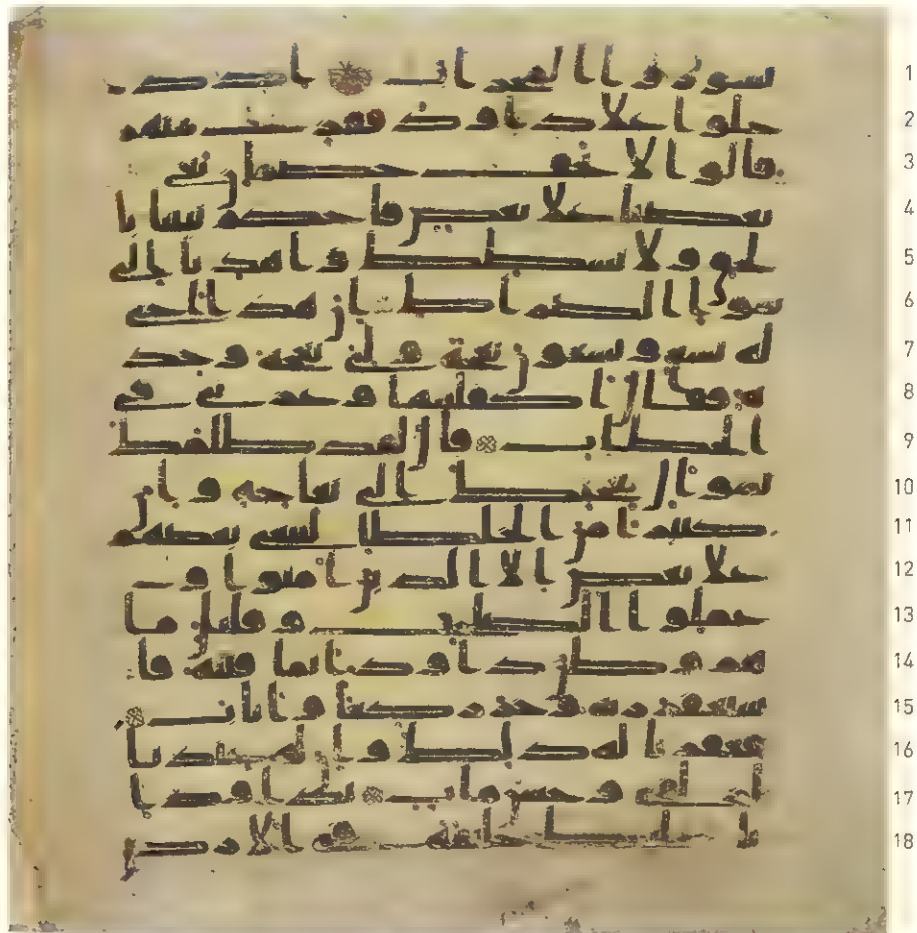 سوروا المحراب اذ د 1
خلوا على داود ففزع منهم 2
قالوا لا تخف خصمن بغى 3
بعضنا على بعض فاحكم بيننا با 4
لحق ولا تشطط واهدنا الى 5
سوا الصرط ان هذا اخى 6
له تسع وتسعون نعجة ولى نعجة وحد 7
ة فقال اكفلنيها وعزنى فى 8
الخطاب قال لقد ظلمك بسو 9
ال نعجتك الى نعاجه وان 10
كثيرا من الخلطا ليبغى بعضهم 11
على بعض الا الذين امنوا و 12
عملوا الصلحت وقليل ما 13
هم وظن داود انما فتنه فا 14
ستغفر ربه وخر راكعا واناب 15
فغفرنا له ذلك وان له عندنا 16
لزلفى وحسن ماب يداود ا 17
نا جعلنك خليفة فى الارض 18